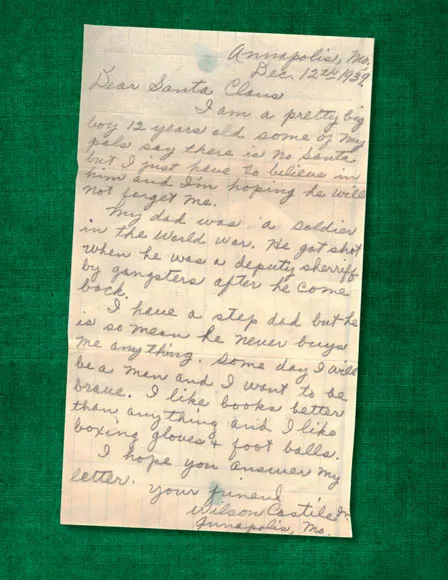 Annapolis, Mo.
Dec. 12th 1939.
Dear Santa Claus
I am a pretty big
boy 12 years old some of my
pals say there is no Santa
but I just have to believe in
him and I'm hoping he will
not forget me.
My dad was a soldier
in the World War. He got shot
when he was a deputy sherriff
by gangsters after he come
back.
I have a step dad but he
is so mean he never buys
me anything. Some day I will
be a man and I want to be
brave. I like books better
than anything and I like
boxing gloves & foot balls.
I hope you answer my
letter. your friend
Wilson Castile Jr.
Annapolis, Mo.